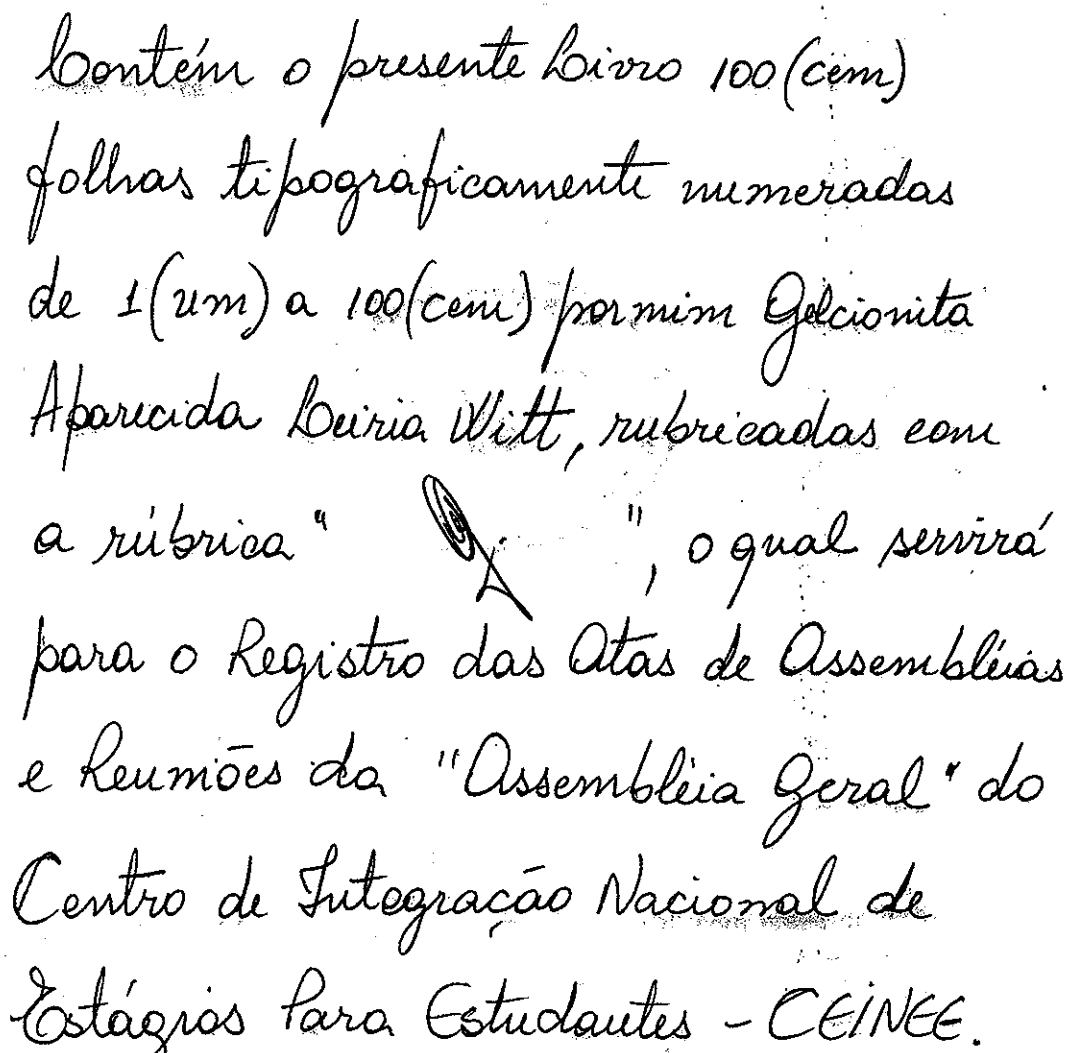 Contém o presente Livro 100 (cem)
folhas tipograficamente numeradas
de 1 (um) a 100 (cem) por mim Gelcionita
Aparecida Leiria Witt, rubricadas com
a rúbrica " ", o qual servirá
para o Registro das Atas de Assembléias
e Reuniões da "Assembléia Geral" do
Centro de Integração Nacional de
Estágios Para Estudantes - CEINEE.